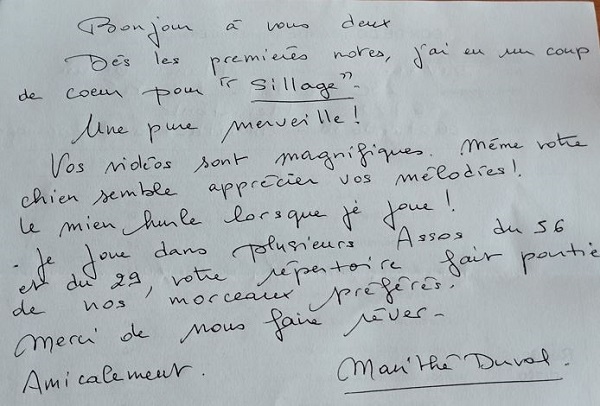 Bonjour à vous deux
Dès les premières notes, j'ai eu un coup
de coeur pour "Sillage".
Une pure merveille !
Vos vidéos sont magnifiques. Même votre
chien semble apprécier vos mélodies !
le mien hurle lorsque je joue !
- Je joue dans plusieurs Assos du 56
et du 29, votre répertoire fait partie
de nos morceaux préférés.
Merci de nous faire rêver -
Amicalement. Marithé Duval.